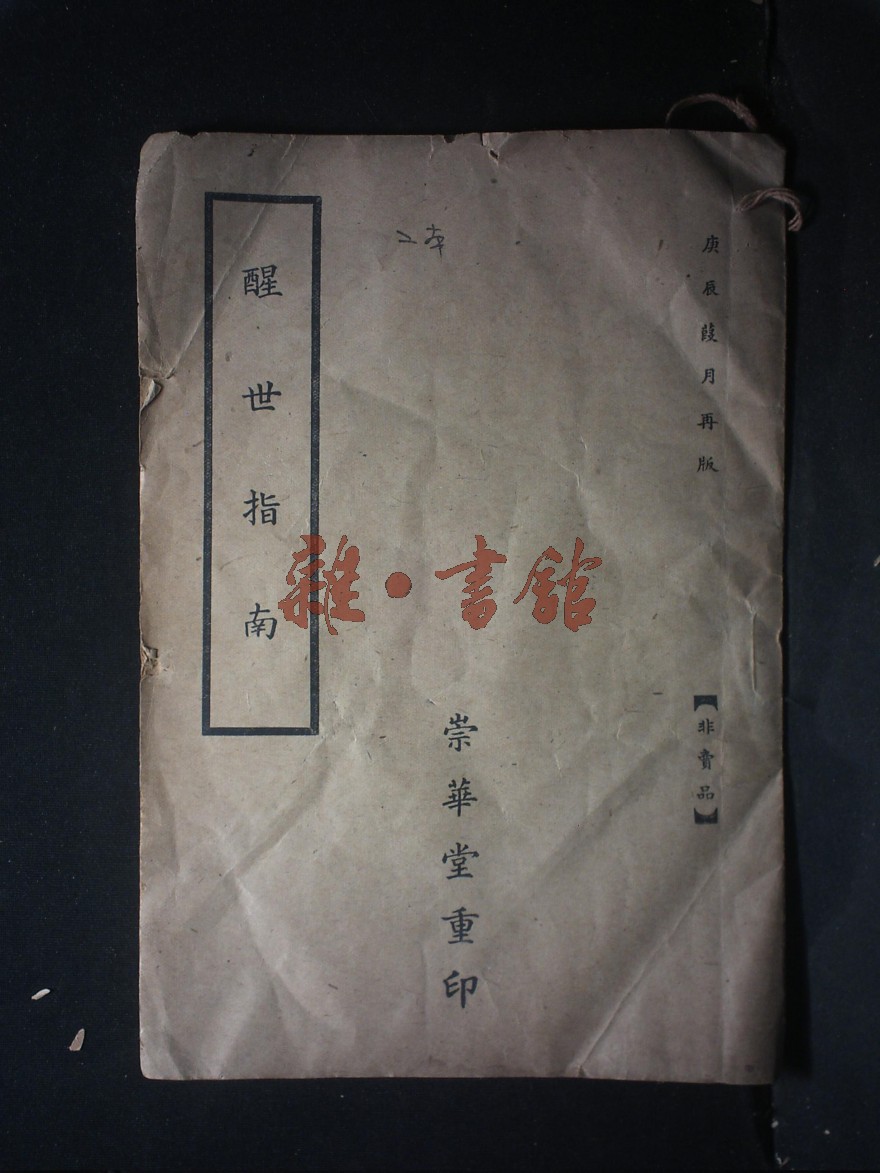 庚辰葭月再版
【非賣品】
二本
崇華堂重印
醒世指南
雜·書館